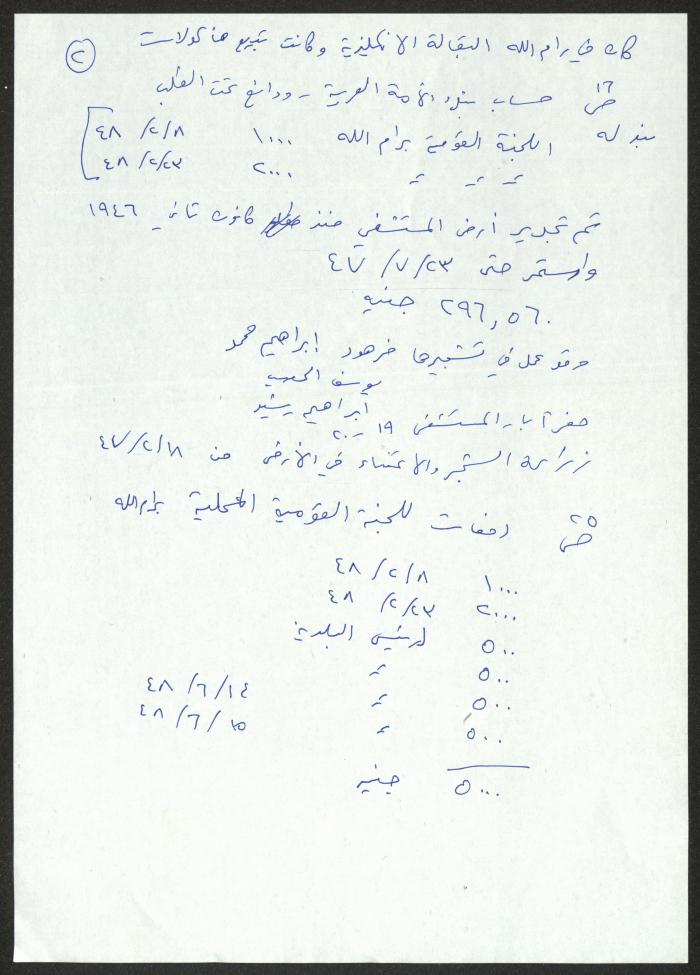 ٢
كان في رام الله البقالة الانكليزية وكانت تبيع مأكولات
ص ١٦ حساب بنك الأمة العربية - ودائع تحت الطلب
اللجنة القومية برام الله ١٠٠٠ ٤٨/٢/٨
〃 〃 〃 ٢٠٠٠ ٤٨/٢/٢٣
تم تجدير أرض المستشفى منذ كانون ثاني ١٩٤٦
واستمر حتى ٤٧/٧/٢٣
٢٩٦,٥٦٠ جنيه
وقد عمل في تشجيرها فرهود ابراهيم حمد
يوسف
ابراهيم رشيد
حفر آبار المستشفى ١٩ - ٢٠
زراعة الشجر والاعتناء في الأرض من ٤٧/٢/١٨
ص ٢٥ دفعات للجنة القومية المحلية برام الله
١٠٠٠ ٤٨/٢/٨
٢٠٠٠ ٤٨/٢/٢٣
٥٠٠ لرئيس البلدية
٥٠٠ 〃
٥٠٠ 〃 ٤٨/٦/١٤
٥٠٠ 〃 ٤٨/٦/١٥
٥٠٠٠ جنيه